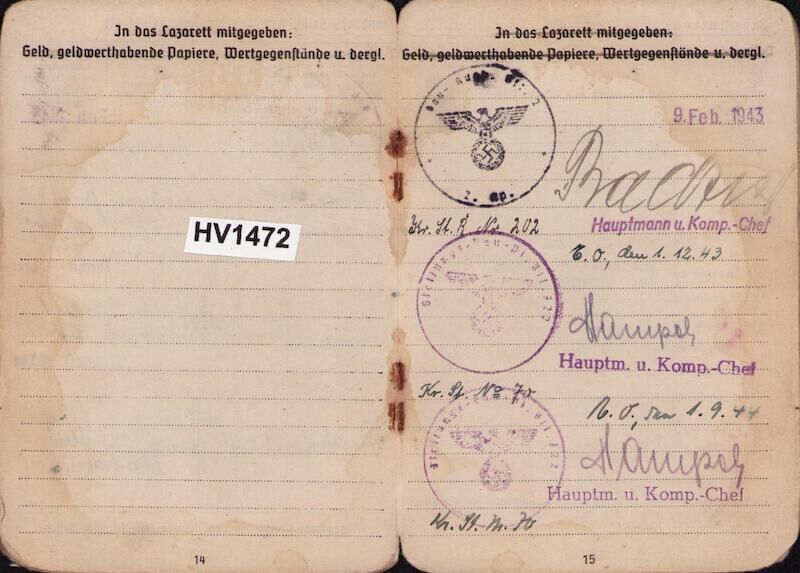 In das Lazarett mitgegeben:
Geld, geldwerthabende Papiere, Wertgegenstände u. dergl.
HV1472
14
In das Lazarett mitgegeben:
Geld, geldwerthabende Papiere, Wertgegenstände u. dergl.
9. Feb. 1943
Hauptmann u. Komp.-Chef
Kr. St. R. Nr. 202
O., den 1.12.43
Hauptm. u. Komp.-Chef
Kr. St. No 70
O., den 1.9.44
Hauptm. u. Komp.-Chef
Kr. St. Nr. 70
15